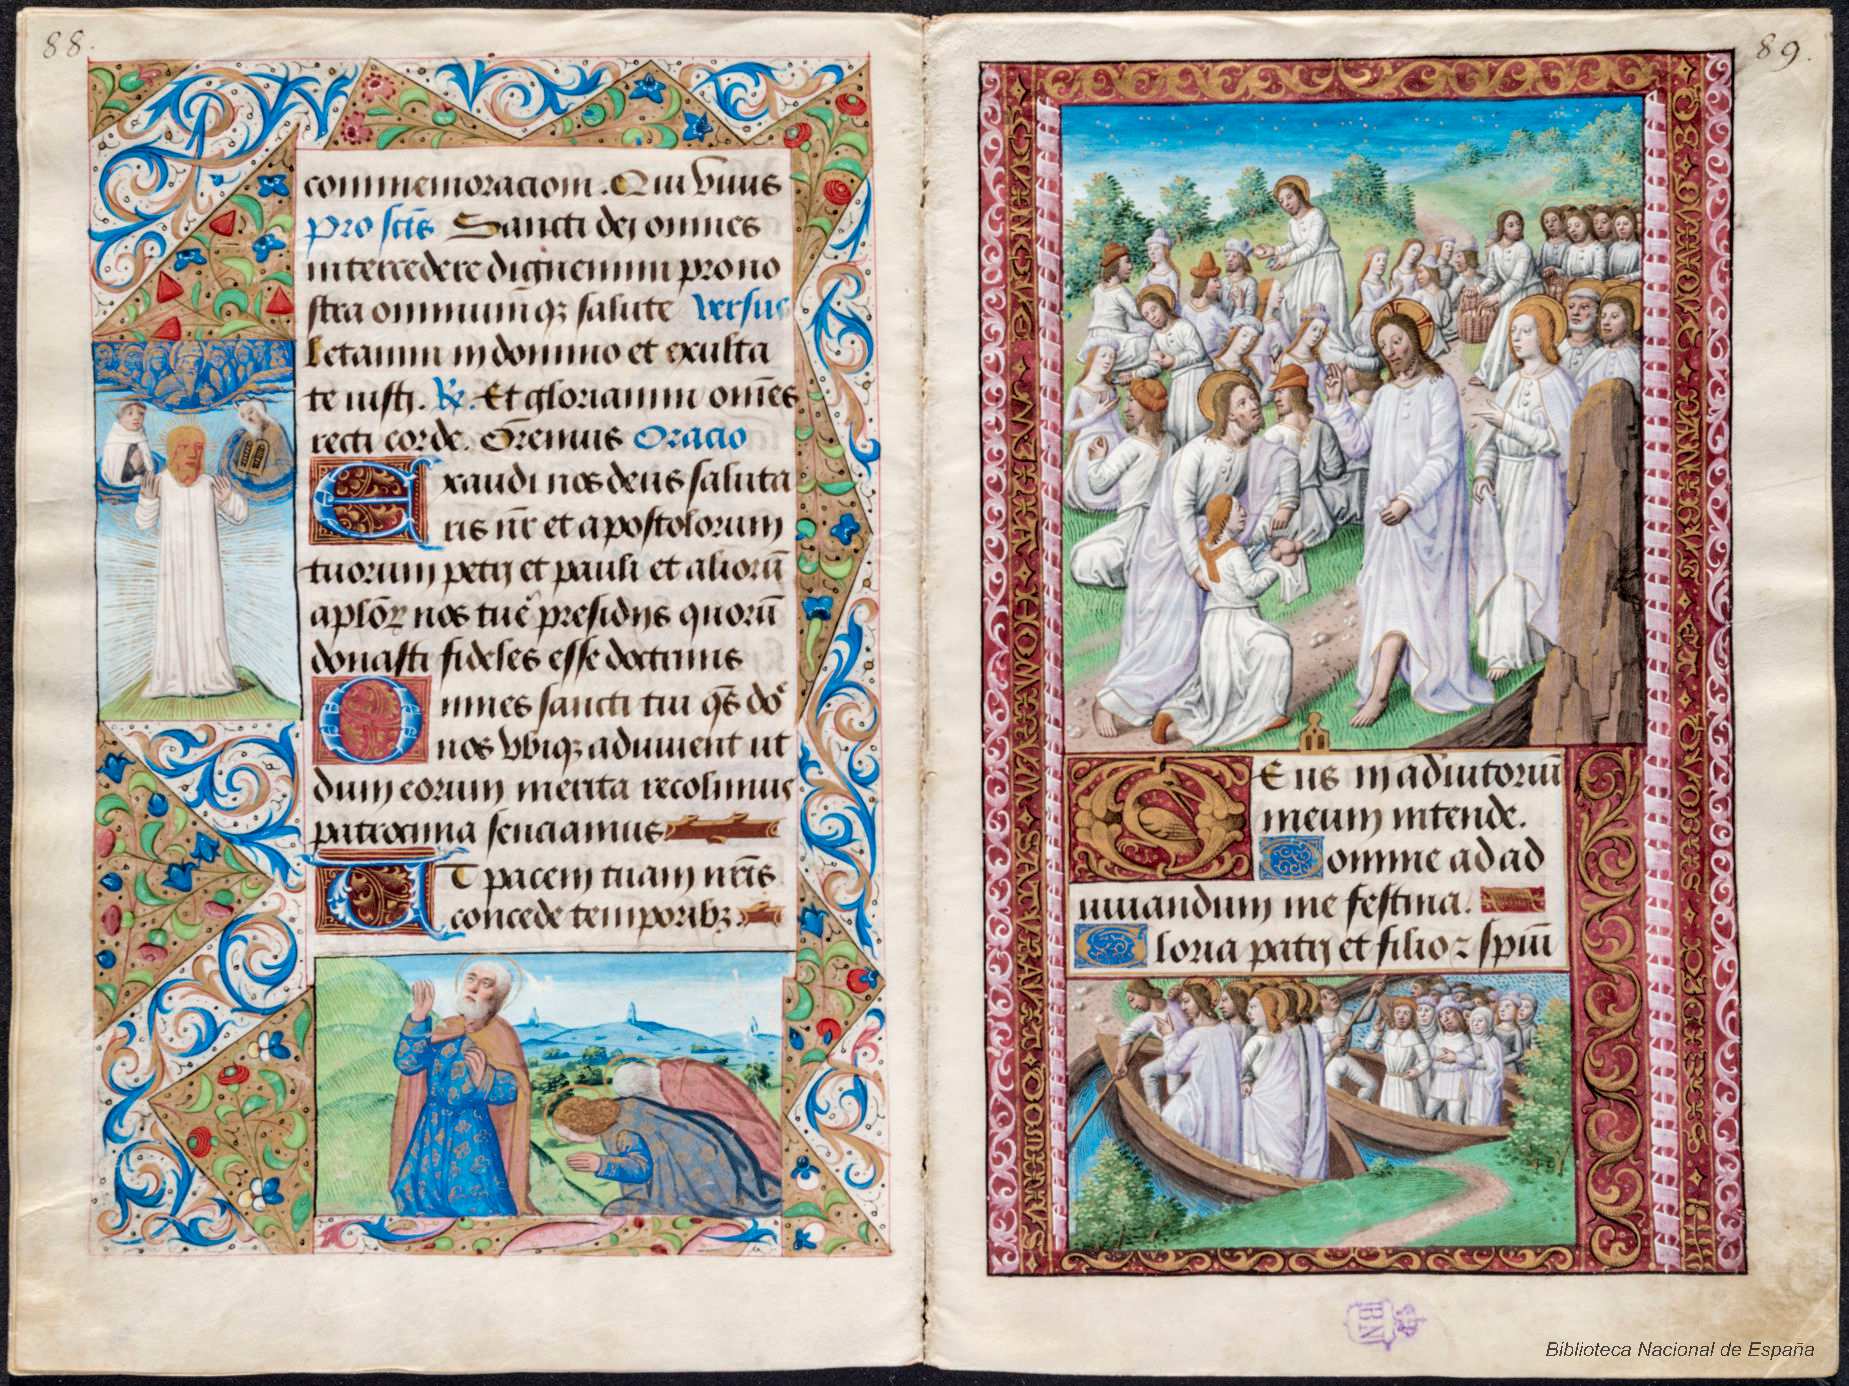 88.
commemoraciom. Qui viuis
pro sctis Sancti dei omnes
intercedere dignemini pro no
stra omniumq; salute versus
Letamini in domino et exulta
te iusti. R. Et gloriamini omēs
recti corde. Oremus Oracio
Exaudi nos deus saluta
ris nr et apostolorum
tuorum petri et pauli et alioru
aplor nos tue presidiis quorū
donasti fideles esse doctrinis
Omnes sancti tui qs do
nos vbiq; adiuuent ut
dum eorum merita recolimus
patrocinia senciamus
Et pacem tuam nris
concede temporib;
89.
Deus in adiutoriū
meum intende.
Domine ad ad
iuuandum me festina.
Gloria patri et filio z spiui
BN
Biblioteca Nacional de España